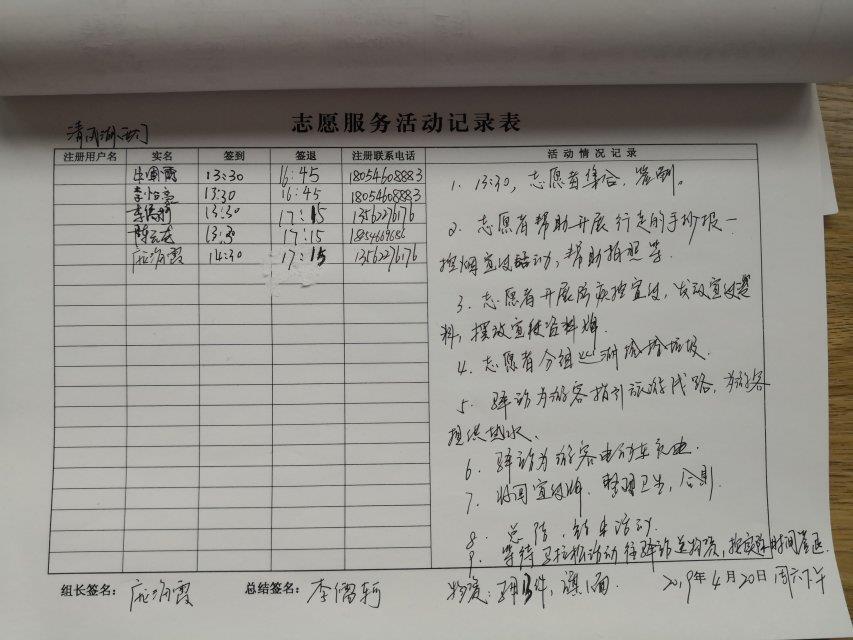 志愿服务活动记录表
注册用户名 实名 签到 签退 注册联系电话 活动情况记录
13:30 16:45 18054608883
13:30 16:45 18054608883
13:30 17:15 13562276176
13:30 17:15
14:30 17:15 13562276176
1. 13:30，志愿者集合，签到。
2. 志愿者帮助开展行走的手抄报一
控烟宣传活动，帮助拍照等.
3. 志愿者开展防疾控宣传，发放宣传资
料，摆放宣传资料牌.
4. 志愿者分组 湖捡拾垃圾.
5. 驿站为游客指引旅游线路，为游客
提供热水、
6. 驿站为游客电动车充电.
7. 收回宣传牌、整理卫生，合影.
8. 总结，结束活动.
9. 等待 活动 驿站送物资，按实际时间签退
组长签名： 霞 总结签名： 李 物资： 2019年4月20日 周六下午